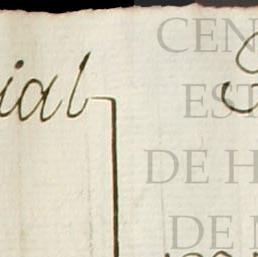 ial
CEN
EST
DE H
DE M